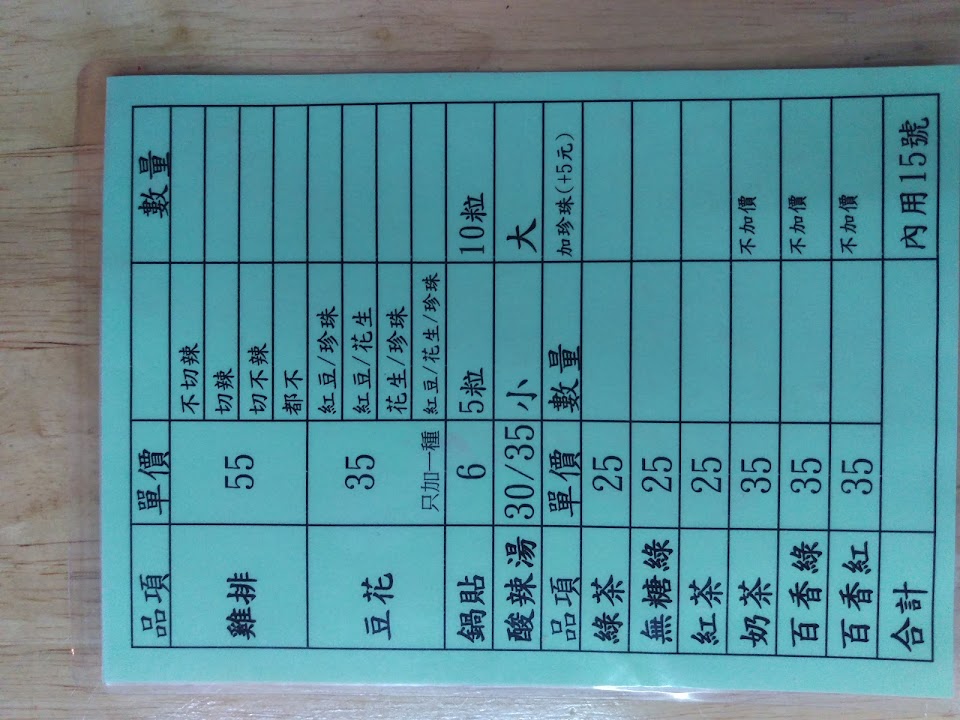 品項 單價 數量
雞排 55 不切辣
切辣
切不辣
都不
豆花 35 紅豆/珍珠
紅豆/花生
花生/珍珠
只加一種 紅豆/花生/珍珠
鍋貼 6 5粒 10粒
酸辣湯 30/35 小 大
品項 單價 數量 加珍珠(+5元)
綠茶 25
無糖綠 25
紅茶 25
奶茶 35 不加價
百香綠 35 不加價
百香紅 35 不加價
合計 內用15號